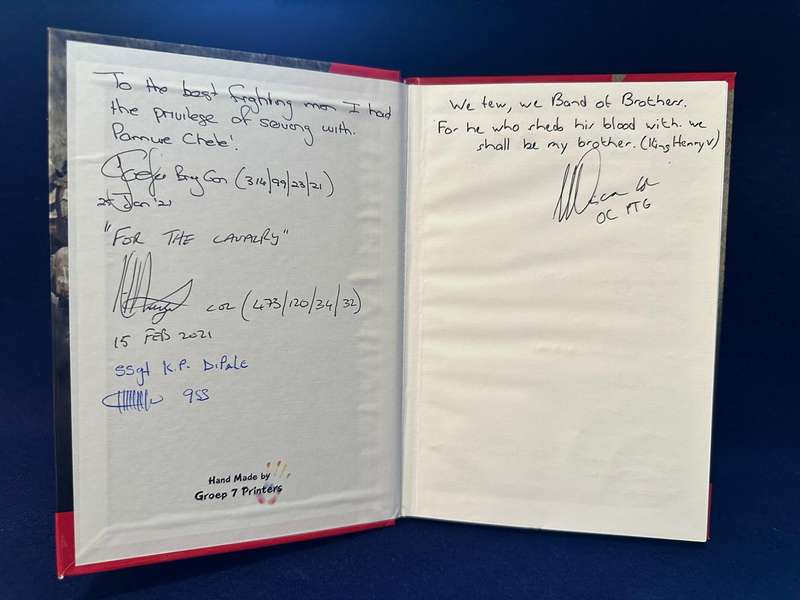 To the best fighting men I had
the privilege of serving with.
Pamwe Chete!
Brig Gen (314/99/23/21)
25 Jan '21
"FOR THE CAVALRY"
COL (473/120/34/32)
15 FEB 2021
SSgt K.P. DiPALE
9SS
Hand Made by
Groep 7 Printers
We few, we Band of Brothers.
For he who sheds his blood with me
shall be my brother. (King Henry V)
OC PTG